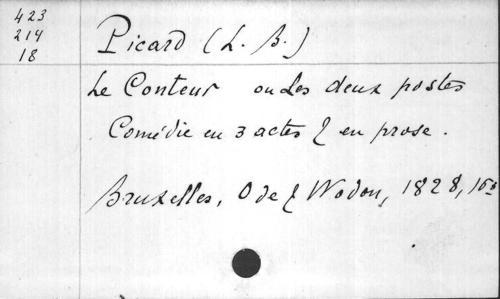 423
214
18
Picard (L. B.)
Le Conteur ou Les deux postes
Comédie en 3 actes & en prose.
Bruxelles, Ode & Wodon, 1828, 16º